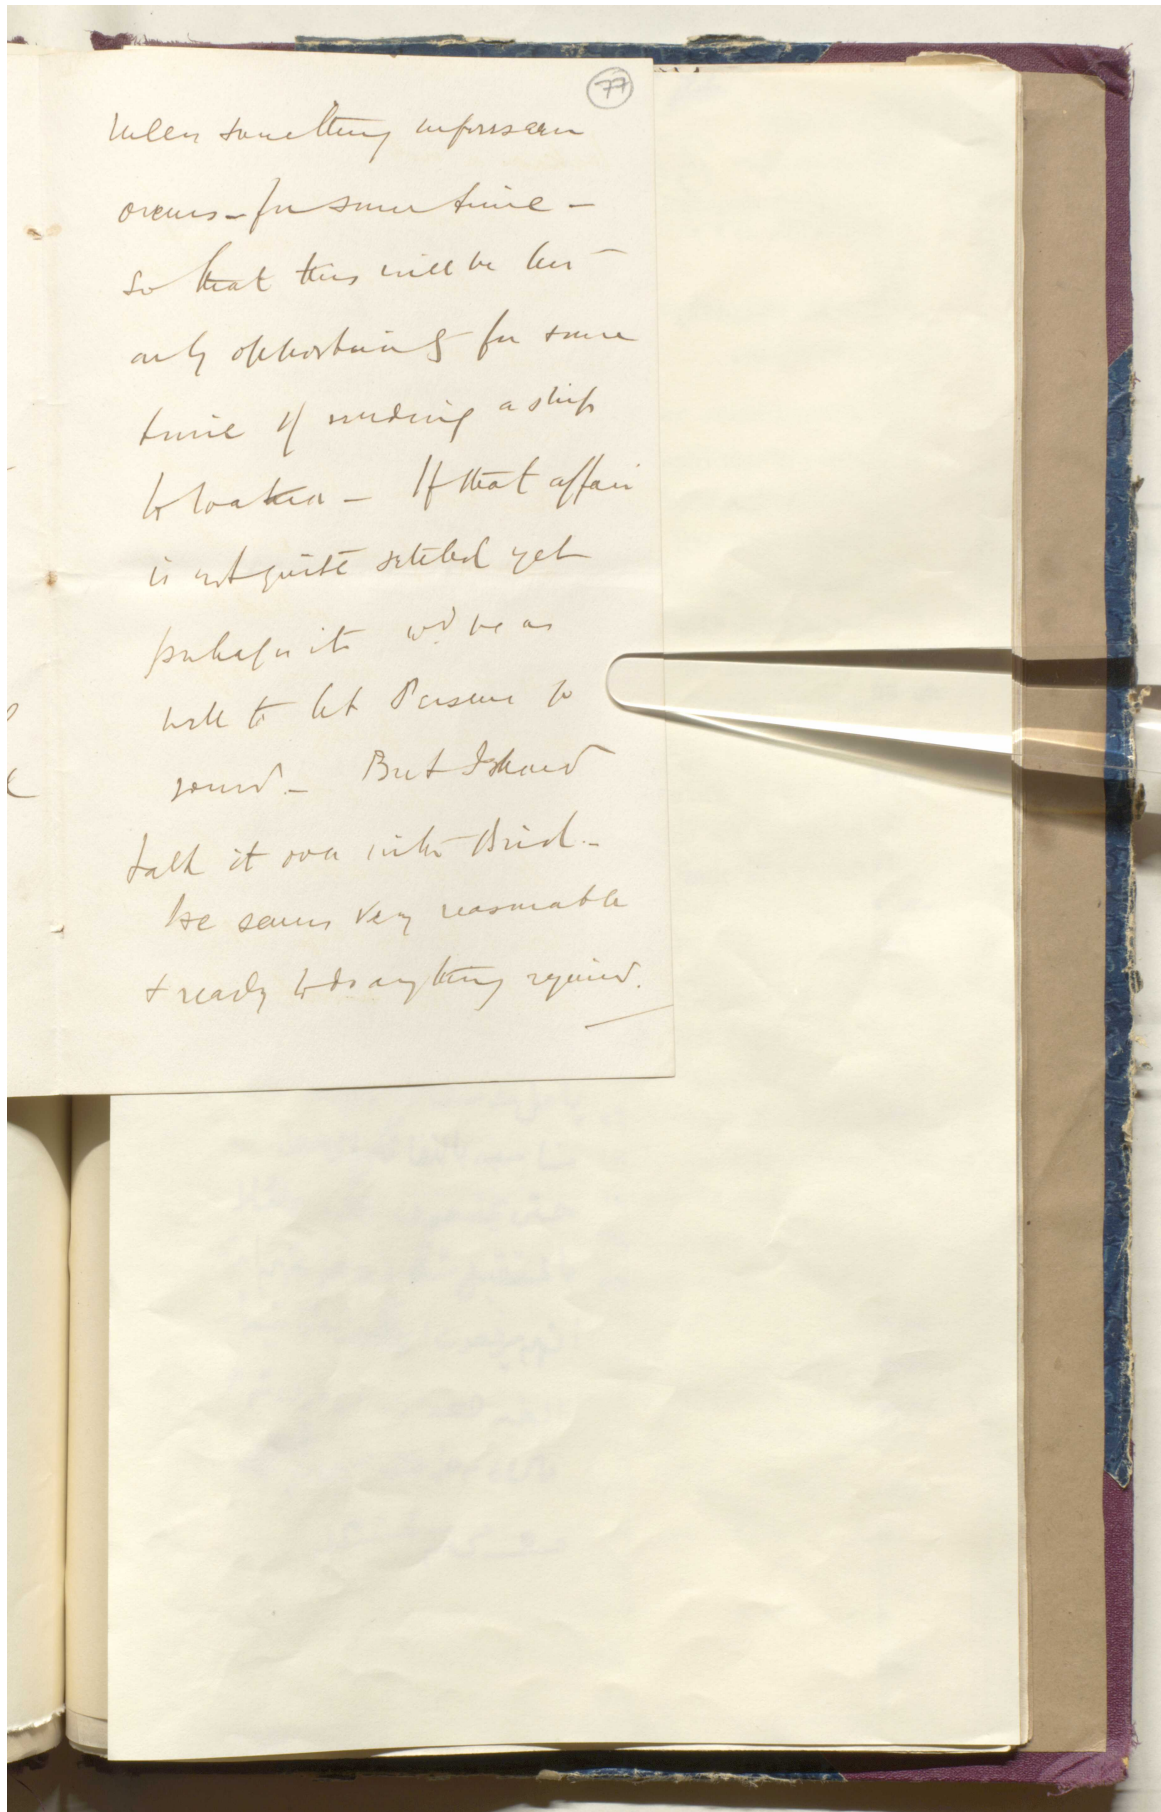 77
unless something unforeseen
occurs – for some time –
so that this will be his
only opportunity for some
time of sending a ship
to – If that affair
is not quite settled yet
perhaps it wd be as
well to let Perseus go
round – But I should
talk it over with
He seems very reasonable
& ready to do anything required.